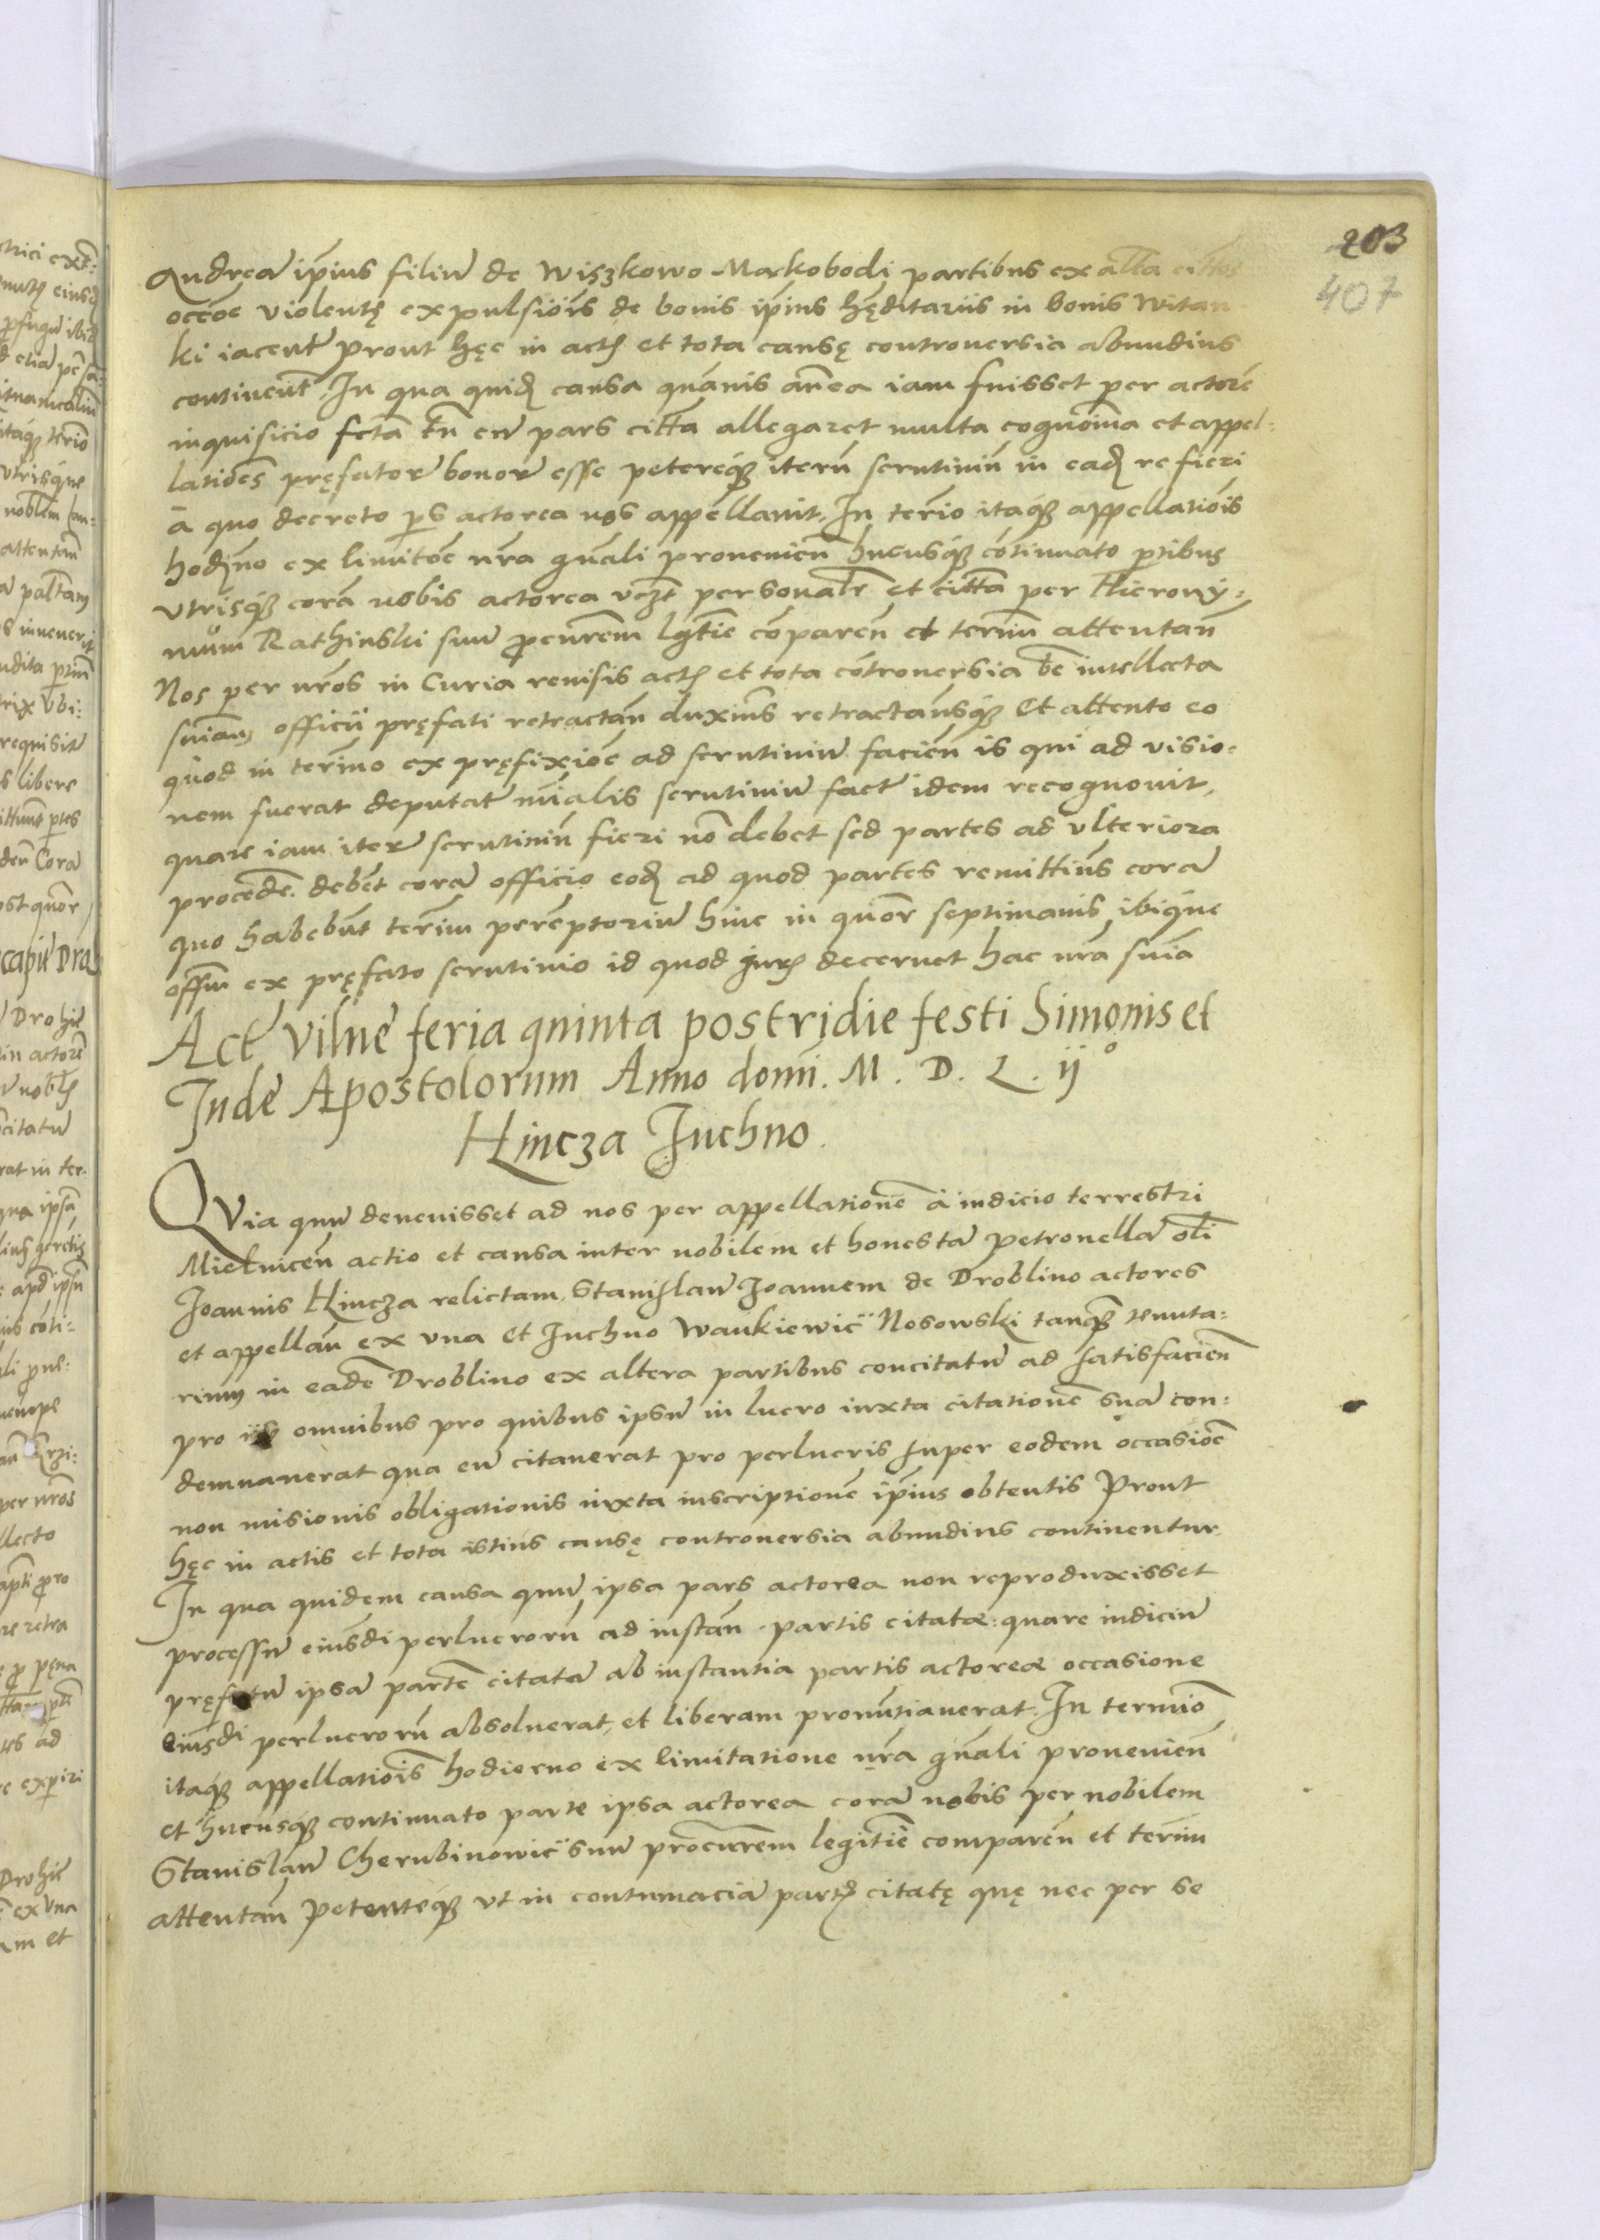 203
407
Andreā ip̄ius filiū de Wiszkowo Markobodi partibus ex altā
occōe violentę expulsiōis de bonis ip̄ius hęditariis in bonis Witan
ki iacent̄ prout hęc in actꝭ et tota causę controuersia abundius
continent̄. In qua quidꝭ causa quāuis ān̄ea iam fuisset per actorē
inquisicio fctā tn̄ eū pars citt̄a allegaret multa cognoīa et appel-
latiōes pręfatorū bonorū esse petereqꝫ iterū scrutiniū in eadꝭ re fieri
ā quo decreto ps actorea nos appellauit. In terīo itaqꝫ appellatiōis
hodꝭno ex limitōe nr̄a gn̄ali prouenien̄ hucusqꝫ cōtinuato ptibus
vtrisqꝫ corā nobis actorea vezt̄ personalr̄ et citt̄a per Hierony-
mum Rathinski suū ꝓcurēm lgtīe cōparen̄ et termīn attentan̄
Nos per nr̄os in Curia reuisis actꝭ et tota cōtrouersia bn̄ intellecta
sniam officii pręfati retractan̄ duxim̄s retractam̄sqꝫ Et attento eo
quod in termīno ex pręfixiōe ad scrutiniū facien̄ is qui ad visio-
nem fuerat deputat̄ mīalis scrutiniū fact̄ idem recognouit,
quare iam iterū scrutiniū fieri nō debet sed partes ad vlteriora
procedē. debēt corā officio eodꝭ ad quod partes remittim̄s corā
quo habebūt termīn perēptoriū hinc in quor̄ septimanis, ibiqúe
offm̄ ex pręfato scrutinio id quod jurꝭ decernet hac nr̄a sniā
Act̄ Vilnē feria quinta postridie festi Simonis et
Judē Apostolorum Anno domī. M. D. L. ij°
Hincza Juchno.
QVia quū deuenisset ad nos per appellationē ā iudicio terrestri
Mielnicen̄ actio et causa inter nobilem et honestā petronellā olī
Joannis Hincza relictam, Stanislaū Joannem de Droblino actores
et appellan̄ ex vna et Juchno Wankiewic̄ Nosowski tanqꝫ tenuta-
rium in eadē Droblino ex altera partibus concitatū ad satisfacien̄
pro iis omnibus pro quibus ipsū in lucro iuxta citationē suā con-
demnauerat qua eū citauerat pro perlucris super eodem occasiōe
non misionis obligationis iuxta inscriptionē ip̄ius obtentis Prout
hęc in actis et tota istius causę controuersia abundius continentur.
In qua quidem causa quū ipsa pars actorea non reproduxisset
processū eiusdi perlucrorū ad instan̄. partis citatæ: quare iudiciū
pręfatū ipsā partē citatā ab instantia partis actoreæ occasione
eiusdi perlucrorū absoluerat, et liberam pronūtiauerat. In termīo
itaqꝫ appellatiōis hodierno ex limitatione nr̄a gn̄ali prouenien̄
et hucusqꝫ continuato parte ipsa actorea corā nobis per nobilem
Stanislaū Cherubinowic̄ suū procurēm legitīe comparen̄ et termīn
attentan̄ Petenteqꝫ vt in contumaciā partꝭ citatę quę nec per se